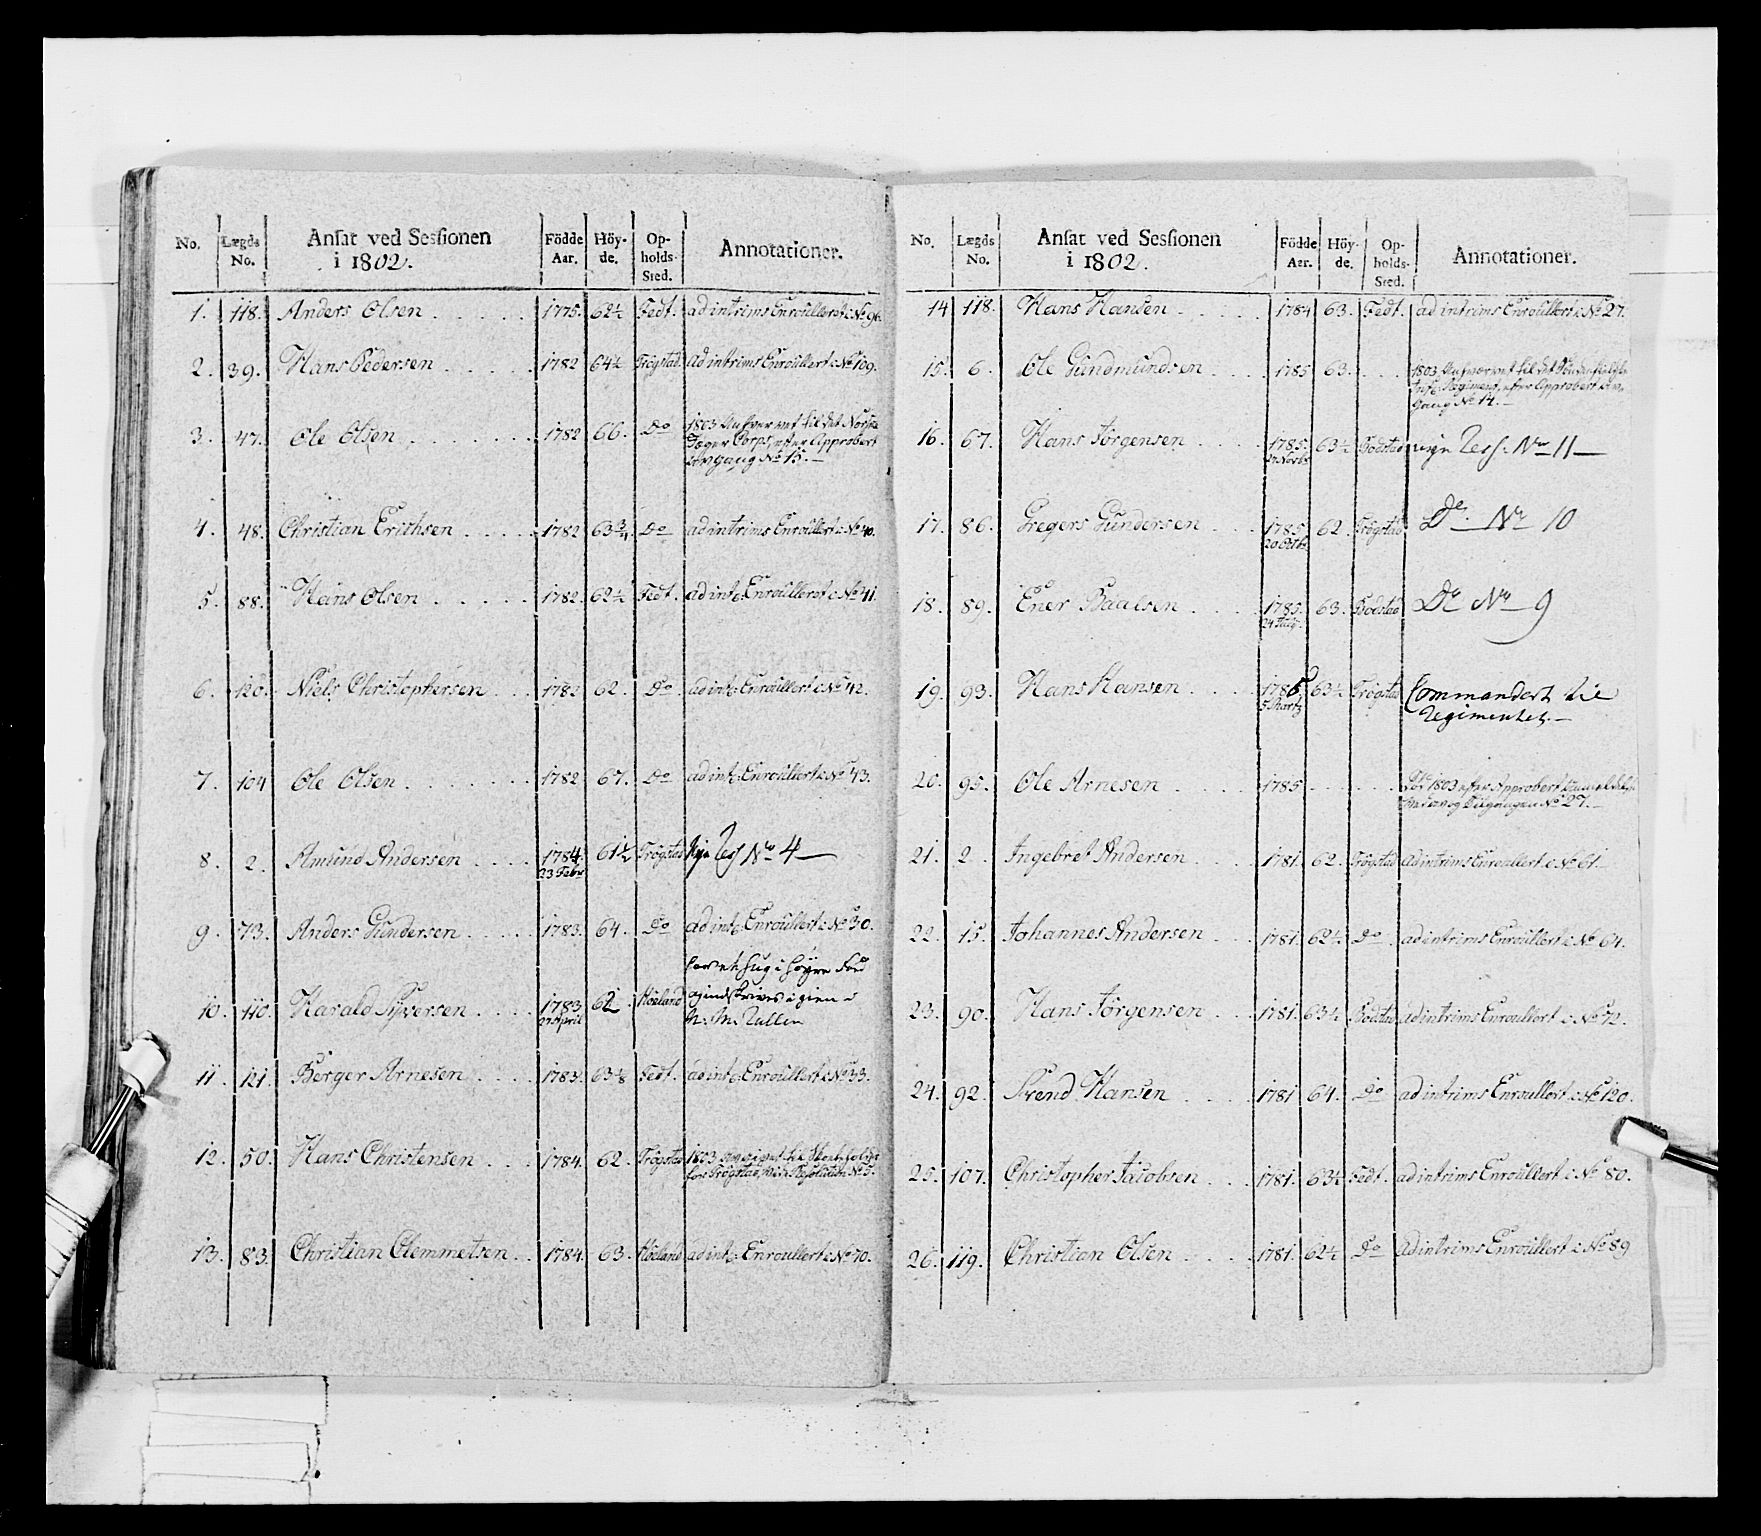 No. | Lægds No. | Ansat ved Sessionen i 1802. | Födde Aar. | Höy- de. | Op- holds- Sted. | Annotationer.
1. | 118. | Anders Olsen | 1775. | 62½ | Fedt. | ad intrims Enroullert: No 96.
2. | 39. | Hans Pedersen | 1782 | 64½ | Trögstad | ad intrims Enroullert: No 109.
3. | 47. | Ole Olsen | 1782 | 66. | Do | 1803 til det Norske
Jæger Corps, efter Approbert
Afgang No 15.
4. | 48. | Christian Erichsen | 1782 | 63¾. | Do | ad intrims Enroullert: No 40.
5. | 88. | Hans Olsen | 1782. | 62½ | Fedt. | ad int: Enroullert: No 41.
6. | 120. | Niels Christophersen | 1782 | 62. | Do. | ad int: Enroullert: No 42.
7. | 104 | Ole Olsen | 1782 | 67. | Do | ad int: Enroullert: No 43.
8. | 2. | Amund Andersen | 1784. 23 Febr | 61½ | Trögstad | No 4
9. | 73. | Anders Gundersen | 1783. | 64. | Do | ad int: Enroullert: No 30.
10. | 110. | Harald Syversen | 1783. 27 April | 62 | Höeland | i höyre
igien
11. | 121. | Berger Arnesen | 1783. | 63⅛ | Fedt. | ad int: Enroullert: No 33.
12. | 50. | Hans Christensen | 1784. | 62. | Trögstad | 1803 til
for Trögstad, Resolution No 5.
13. | 83. | Christian Clemmetsen | 1784. | 63. | Höeland | ad int: Enroullert: No 70.
No. | Lægds No. | Ansat ved Sessionen i 1802. | Födde Aar. | Höy- de. | Op- holds- Sted. | Annotationer.
14 | 118. | Hans Hansen | 1784 | 63. | Fedt. | ad intrims Enroullert: No 27.
15. | 6. | Ole Gundmundsen | 1785 | 63. | 1803 til det
Regiment, efter Approbert
Gang No 14.
16. | 67. | Hans Jörgensen | 1785. | 63½ | Bodstad | No 11
17. | 86. | Gregers Gundersen | 1785. 20 Octbr | 62. | Trögstad | Do No 10
18. | 89. | Ener Paalsen | 1785. | 63. | Bodstad | Do No 9
19. | 93. | Hans Hansen | 1785 5 Martz | 63½ | Trögstad | Commandert til
Regimentet.
20. | 95. | Ole Arnesen | 1785 | 1803 efter Approbert
Tilgangen No 27.
21. | 2. | Ingebret Andersen | 1781. | 62. | Trögstad | ad intrims Enroullert: No 61.
22. | 15. | Johannes Andersen | 1781. | 62½ | Do. | ad intrims Enroullert: No 64.
23. | 90. | Hans Jörgensen | 1781. | 63½ | Bodstad | ad intrims Enroullert: No 72.
24. | 92. | Svend Hansen | 1781 | 64. | Do | ad intrims Enroullert: No 120.
25. | 107. | Christopher Jacobsen | 1781. | 63½ | Fedt. | ad intrims Enroullert: No 80.
26. | 119. | Christian Olsen | 1781. | 62½ | Do | ad intrims Enroullert: No 89